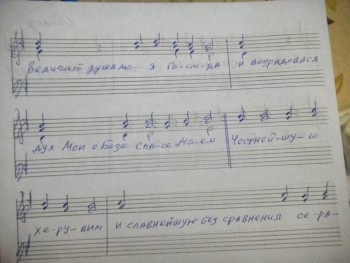 Величит душа мо- я Го-спо-да и возрадовася
дух Мой о Бозе Спа-се Мо-ем Честней-шу-ю
хе-ру-вим и славнейшую без сравнения се-ра-